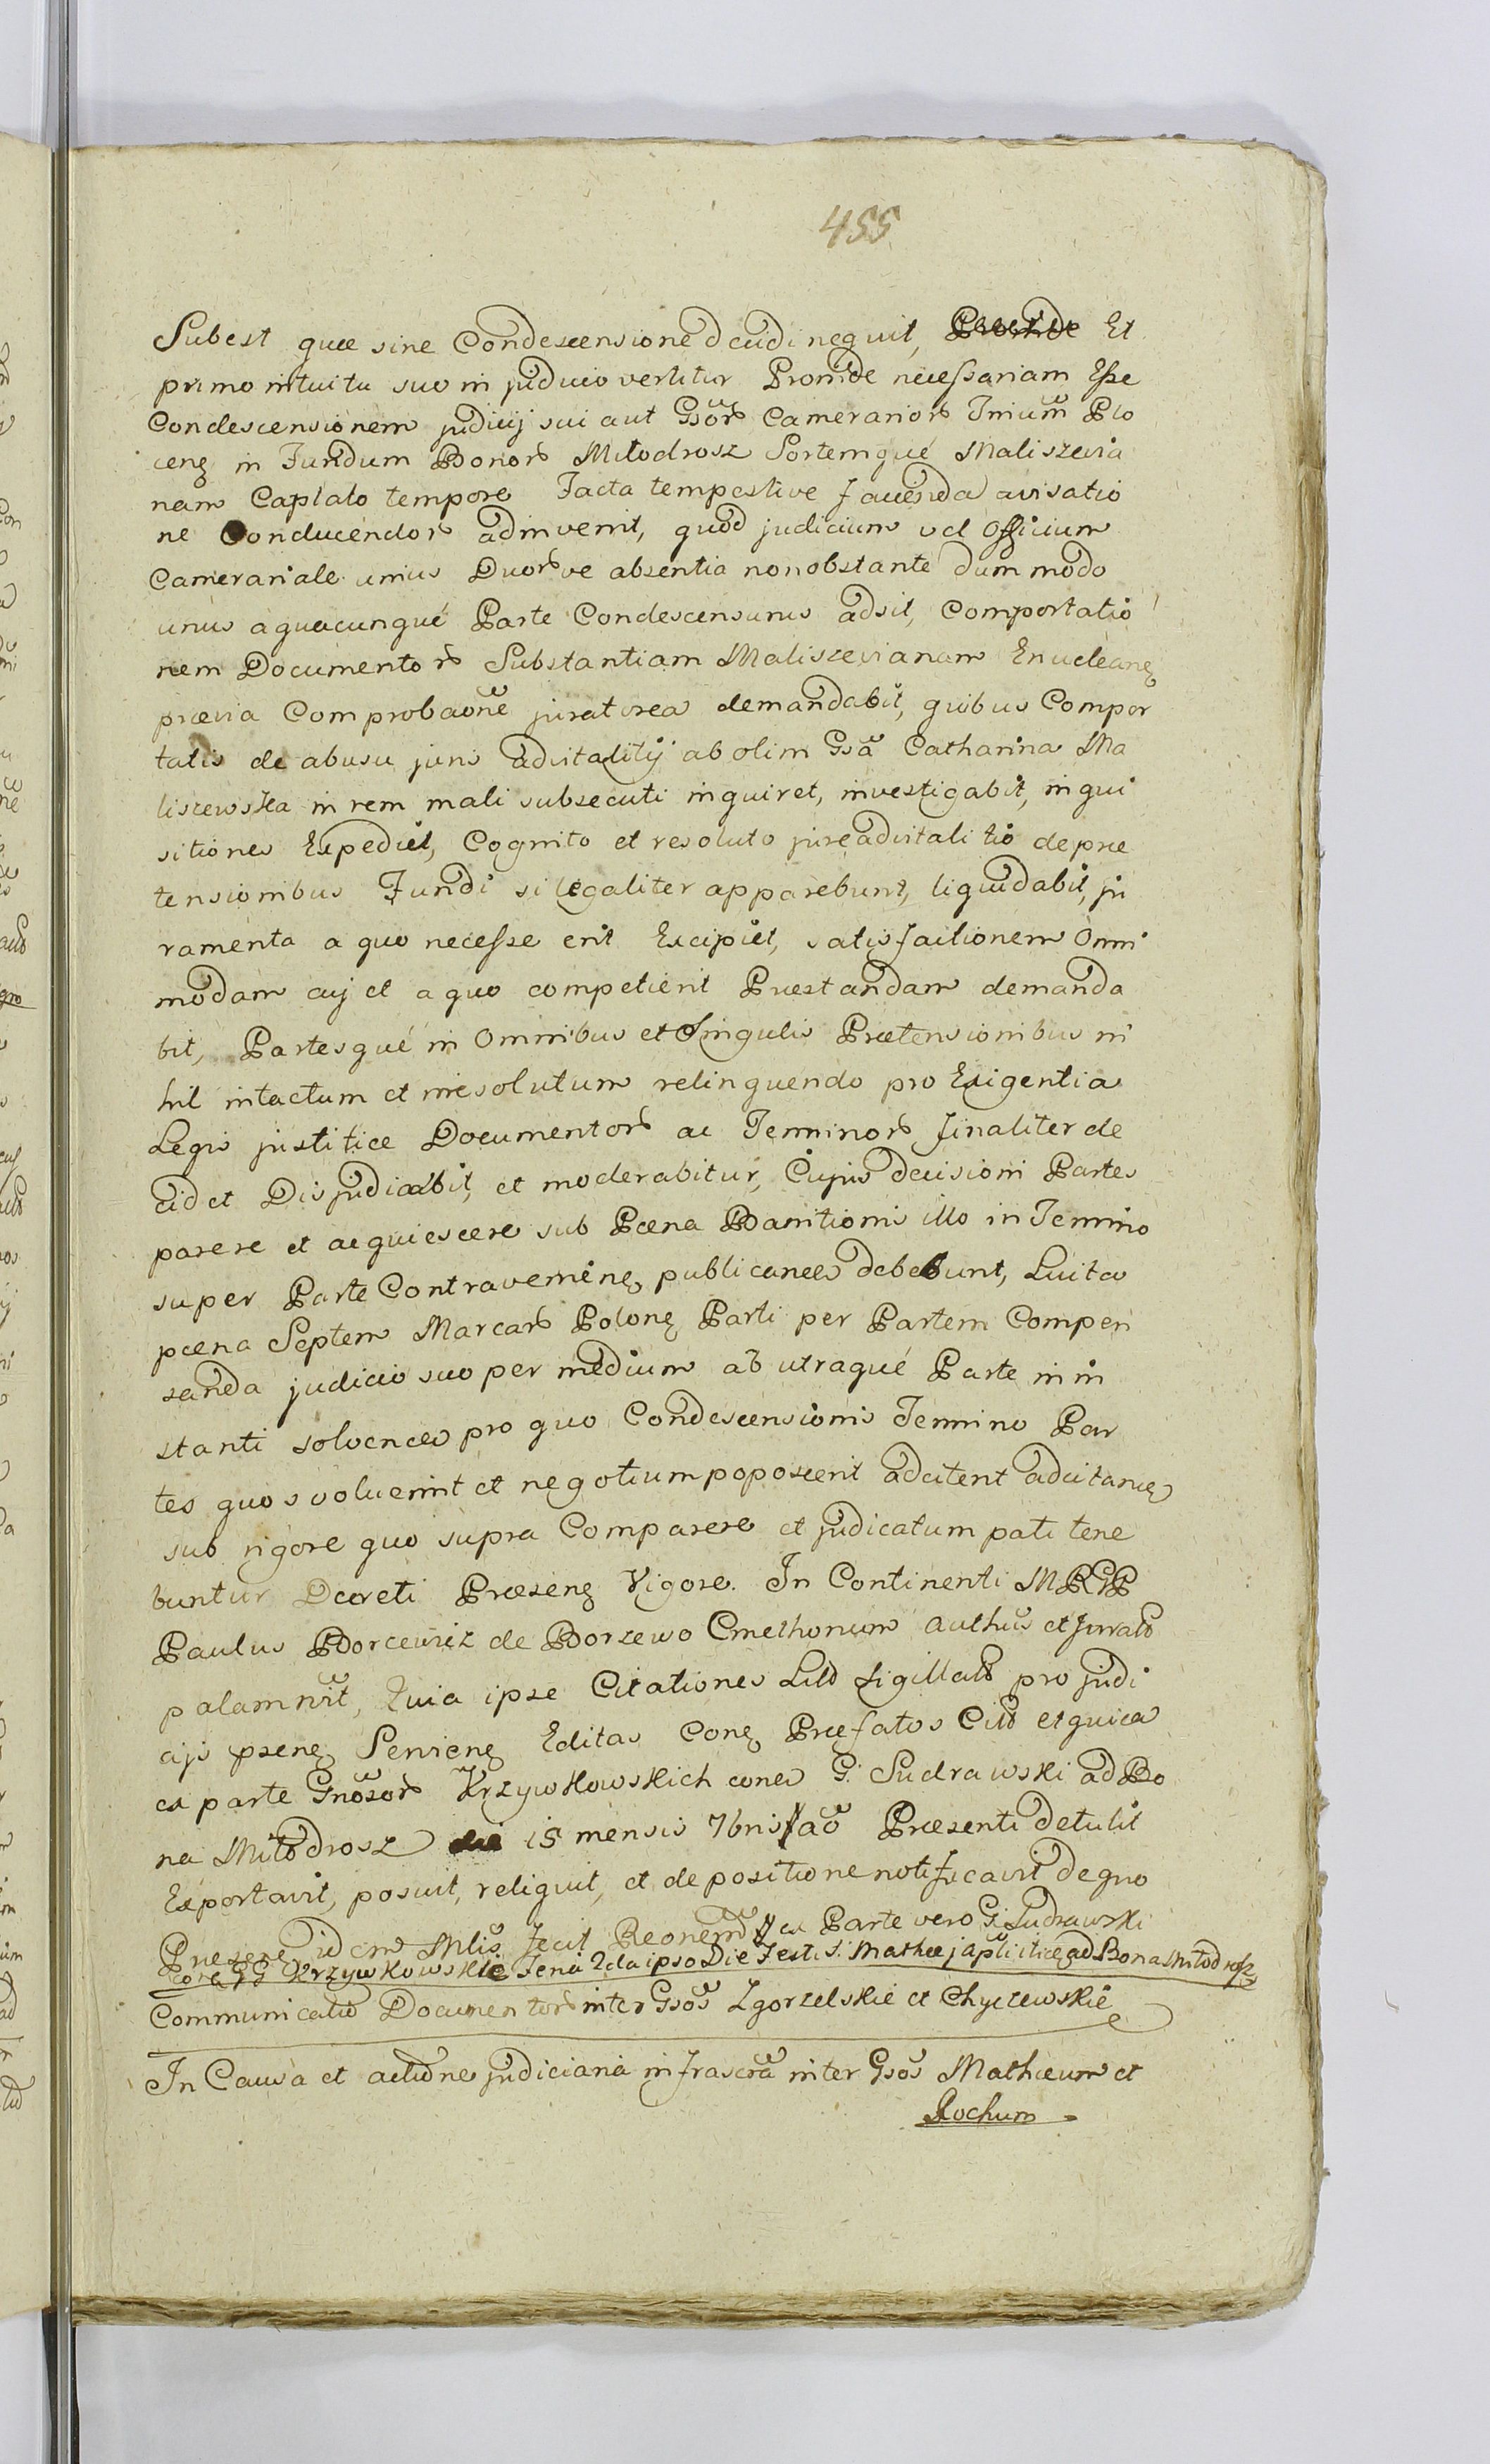 455
Subest quæ sine Condescensione decidi nequit, Proinde Et
primo intuitu suo in judicio vertitur Proinde necessariam Esse
Condescensionem judicij sui aut Gsör Camerarior Tririum Plo
cenę in Fundum Bonor Miłodrosz Sortemqué Maliszevia
nam Captato tempore Facta tempestive facienda avisatio
ne Conducendor adinvenit, quod judicium vel officium
Camerariale unius Duorve absentia nonobstante dum modo
unus aquacunqué Parte Condescensurus adsit, Comportatio
nem Documentor Substantiam Maliszevianam Enucleanę
prævia Comprobaone juratorea demandabit, quibus Compor
tatis de abusu juris advitalitij ab olim Gsa Catharina Ma
liszewska in rem mali subsecuti inquiret, investigabit, inqui
sitiones Expediet, Cognito et resoluto jure advitalitio de præ
tensionibus Fundi si legaliter apparebunt, liquidabit, ju
ramenta a quo necesse erit Excipiet, satisfactionem Omni
modam cuj et a quo competierit Præstandam demanda
bit, Partesqué in Omnibus et Singulis Prætensionibus ni
hil intactum et irresolutum relinquendo pro Exigentia
Legis justitiæ Documentor ac Terminor finaliter de
cidet Disjudicabit, et moderabitur, Cujus decisioni Partes
parere et acquiescere sub Pœna Banitionis illo in Termino
super Parte Contravenienę publicanda debebunt, Luita
pœna Septem Marcar Polonę Parti per Partem Compen
sanda judicio suo per medium ab utraqué Parte in in
stanti solvenda pro quo Condescensionis Termino Par
tes quos voluerint et negotium poposcerit adcitent adcitanę
sub rigore quo supra Comparere et judicatum pati tene
buntur Decreti Præsenę Vigore. In Continenti MRGP
Paulus Borcewicz de Borzewo Cmethonum authus et Jurat
palam nit, Quia ipse Citationes Litt Sigillatt pro judi
cijs psenę Servienę Editas Conę Præfatos Citt et quidea
ex parte Gnosor Krzywkowskich conea G. Sudrawski ad Bo
na Miłodrosz die 15 mensis 7bris ao Præsenti detulit
Exportavit, posuit, reliquit, et de positione notificavit de quo
Præsenę idem Mlis fecit Reonem ex Parte vero G. Sudrawski
conę GG Krzywkowskie Feria 2da ipso Die Festi S. Mathæj apli itidę ad Bona Miłodrosz
Communicatio Documentor inter Gsos Zgorzelskie et Chyczewskie
In Causa et actione judiciaria infrascra inter Gsos Mathæum et
Rochum